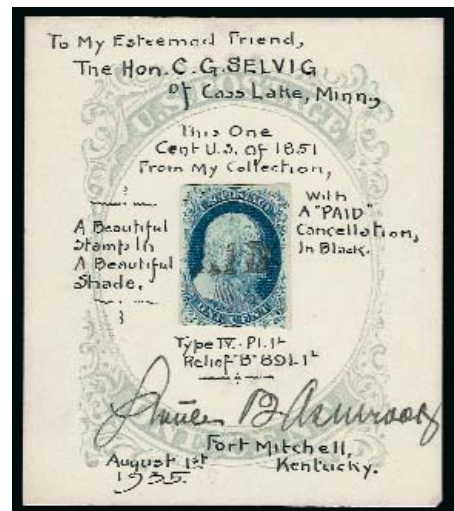 To My Esteemed Friend,
The Hon. C. G. SELVIG
of Cass Lake, Minn,
U.S. POSTAGE
This One
Cent U.S. of 1851
From My Collection,
A Beautiful
Stamp In
A Beautiful
Shade.
With
A "PAID"
Cancellation,
In Black.
AID
Type IV.- Pl. 1L
Relief "B" 89L1L
B. Ashbrook
Fort Mitchell,
Kentucky.
August 1st
1935.